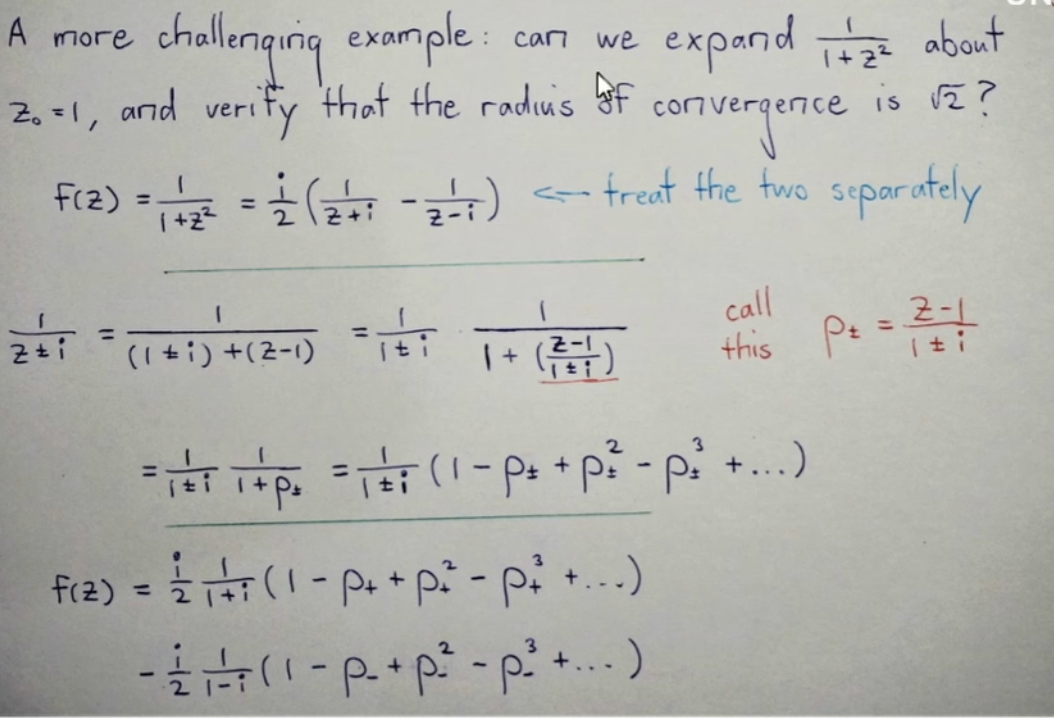 A more challenging example: can we expand 1/(1+z²) about
z₀ = 1, and verify that the radius of convergence is √2?
f(z) = 1/(1+z²) = i/2 (1/(z+i) - 1/(z-i)) ← treat the two separately
1/(z±i) = 1/((1±i)+(z-1)) = 1/(1±i) · 1/(1+((z-1)/(1±i))) call this ρ± = (z-1)/(1±i)
= 1/(1±i) 1/(1+ρ±) = 1/(1±i) (1 - ρ± + ρ±² - ρ±³ + ...)
f(z) = i/2 1/(1+i) (1 - ρ₊ + ρ₊² - ρ₊³ + ...)
- i/2 1/(1-i) (1 - ρ₋ + ρ₋² - ρ₋³ + ...)